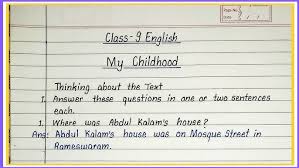 Page No.
Date
Class-9 English
My Childhood
Thinking about the Text
1. Answer these questions in one or two sentences
each.
1. Where was Abdul Kalam's house?
Ans: Abdul Kalam's house was on Mosque Street in
Rameswaram.